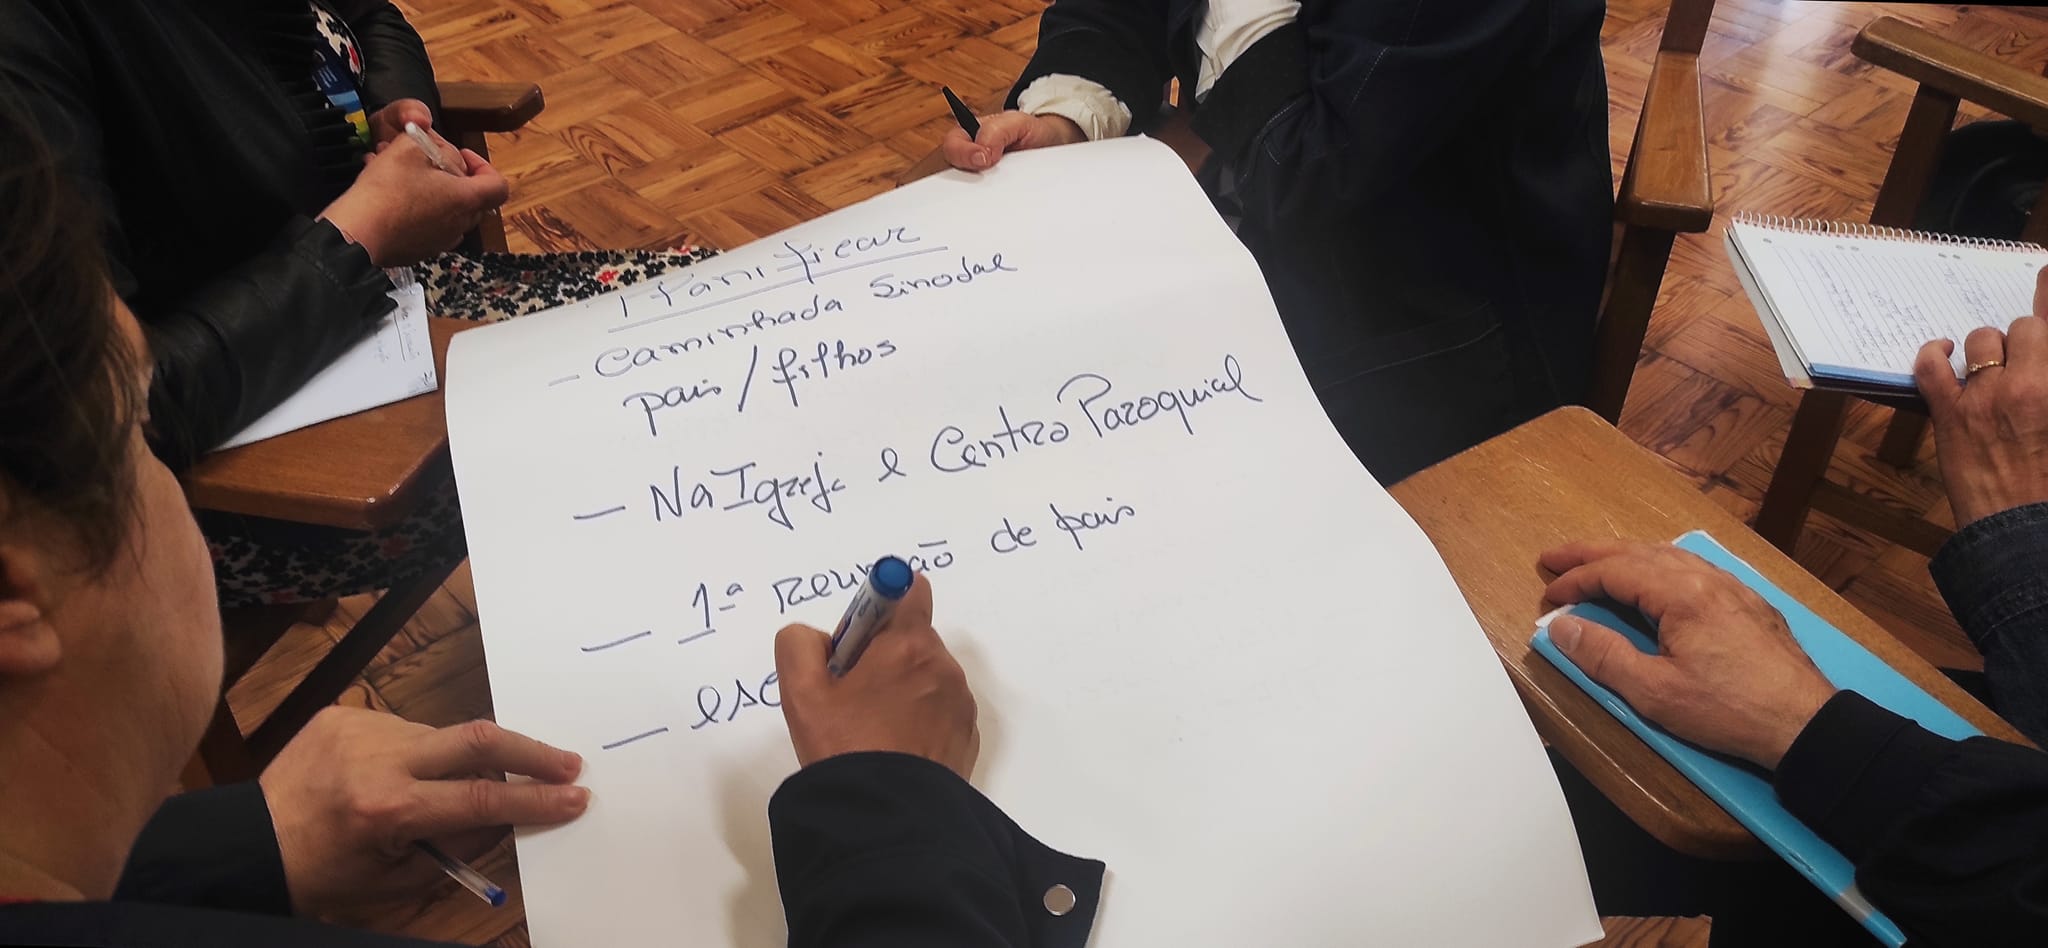 Planificar
- Caminhada Sinodal
pais/filhos
- Na Igreja e Centro Paroquial
- 1ª reunião de pais
- esc